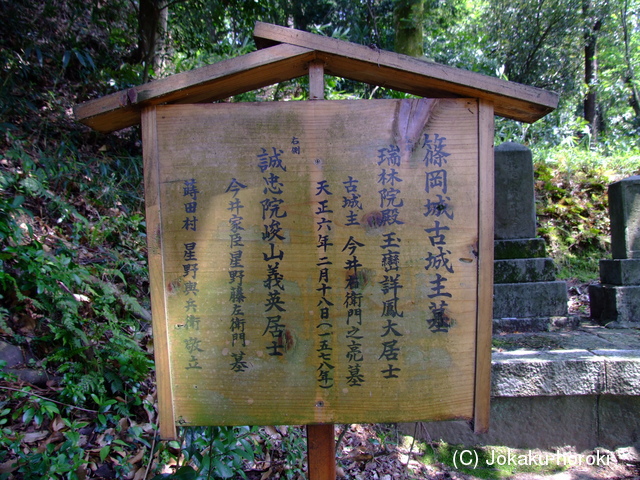 篠岡城古城主墓
瑞林院殿玉巒詳鳳大居士
古城主 今井右衛門之亮墓
天正六年二月十八日(一五七八年)
右側
誠忠院峻山義英居士
今井家臣星野藤左衛門 墓
蒔田村 星野與兵衛 敬立
(C)Jokaku-horoki